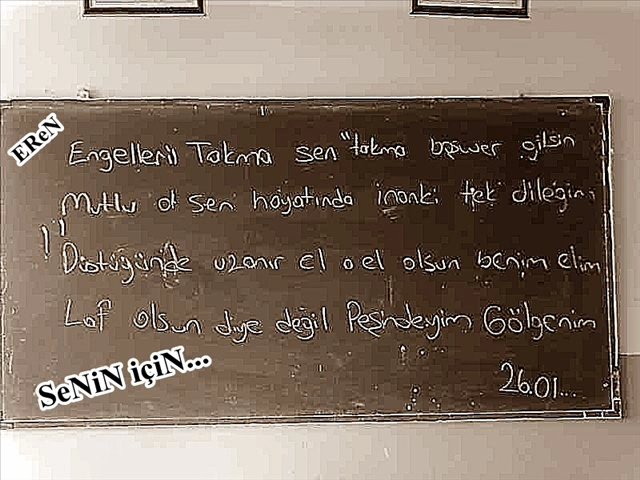 EReN
Engelleri Takma sen "takma boşver gitsin
Mutlu ol sen hayatında inanki tek dileğim
Düştüğünde uzanır el o el olsun benim elim
Laf olsun diye değil Peşindeyim Gölgenim
26.01...
SeNiN içiN...